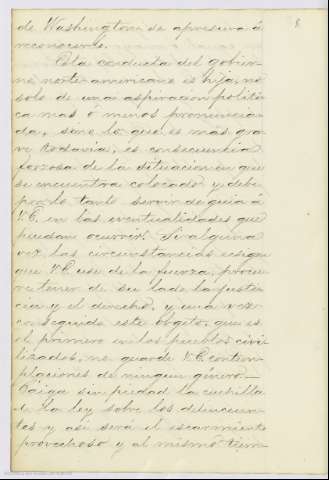 8
de Washington se apresura á
reconocerle.
Esta conducta del gobier-
no norte americano es hija, no
solo de una aspiracion políti
ca mas ó menos pronuncia-
da, sino lo que es más gra-
ve todavía, es consecuencia
forzosa de la situacion en que
se encuentra colocado y debe
por lo tanto servir de guia á
V.E. en las eventualidades que
puedan ocurrir. Si alguna
vez las circunstancias exigen
que V.E. use de la fuerza, procu
re tener de su lado la justi-
cia y el derecho, y una vez
conseguido este objeto, que es
el primero en los pueblos civi
lizados, no guarde V.E. contem
placiones de ningun género.
Caiga sin piedad la cuchilla
de la ley sobre los delincuen-
tes y asi será el escarmiento
provechoso y al mismo tiem-